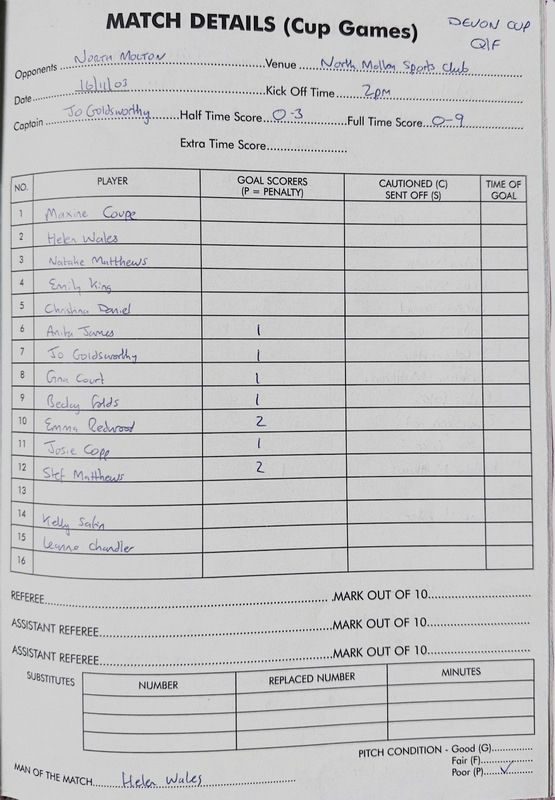 MATCH DETAILS (Cup Games) DEVON CUP
Q/F
Opponents North Molton Venue North Molton Sports Club
Date 16/11/03 Kick Off Time 2pm
Captain Jo Goldsworthy Half Time Score 0-3 Full Time Score 0-9
Extra Time Score
NO. PLAYER GOAL SCORERS (P = PENALTY) CAUTIONED (C) SENT OFF (S) TIME OF GOAL
1 Maxine Coupe
2 Helen Wales
3 Natalie Matthews
4 Emily King
5 Christina Daniel
6 Anita James 1
7 Jo Goldsworthy 1
8 Gina Court 1
9 Becky Folds 1
10 Emma Redwood 2
11 Josie Copp 1
12 Stef Matthews 2
13
14 Kelly
15 Leanne Chandler
16
REFEREE MARK OUT OF 10
ASSISTANT REFEREE MARK OUT OF 10
ASSISTANT REFEREE MARK OUT OF 10
SUBSTITUTES NUMBER REPLACED NUMBER MINUTES
PITCH CONDITION - Good (G)
Fair (F)
Poor (P) ✓
MAN OF THE MATCH Helen Wales